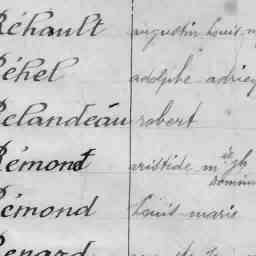 Réhault augustin Louis
Réhel adolphe adrien
Relandeau robert
Rémont aristide m
Rémond Louis marie
Renard